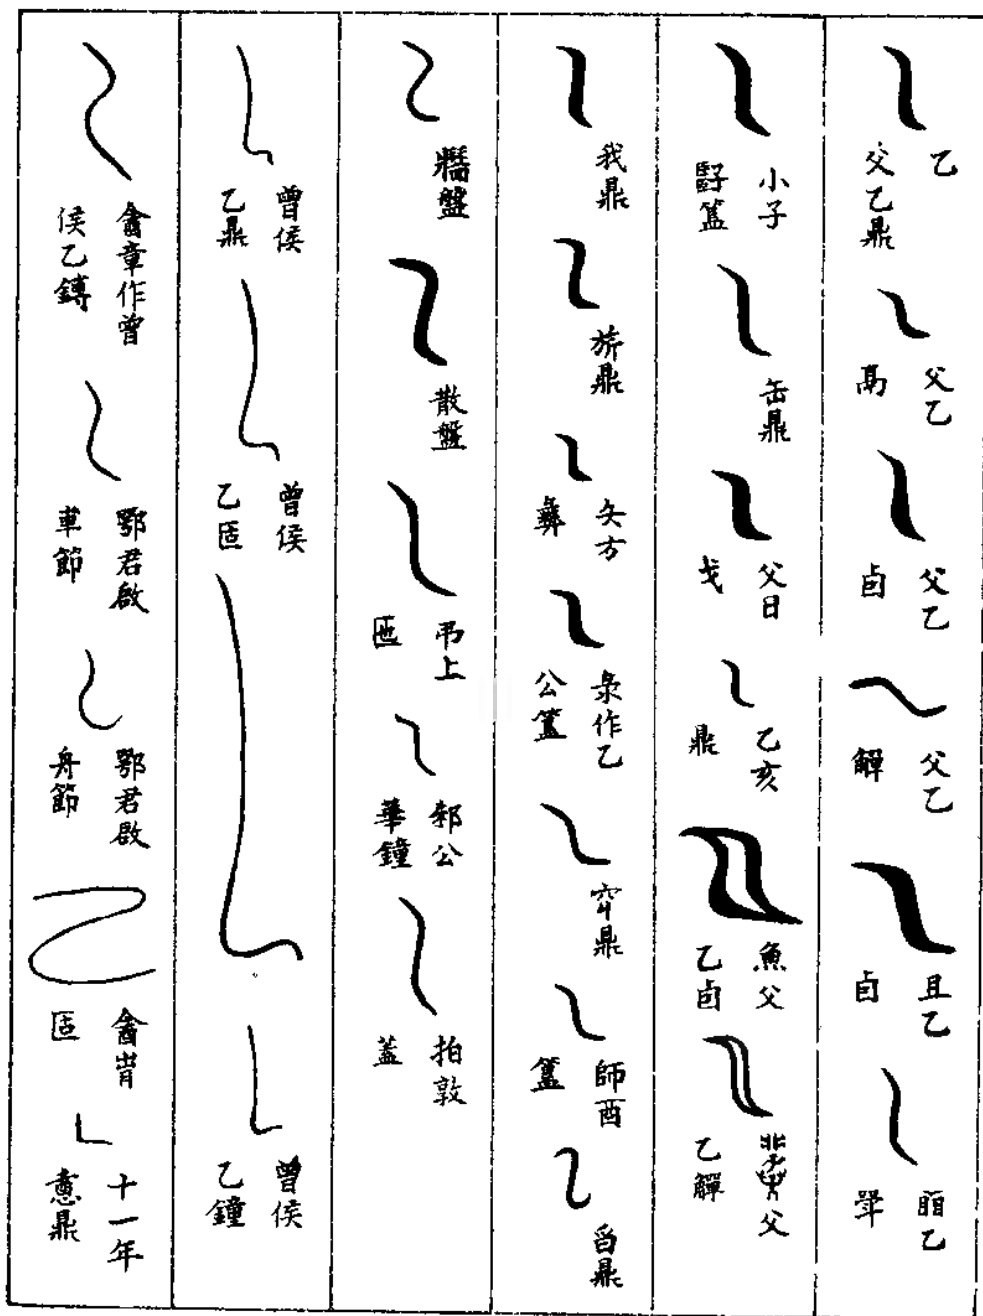 乙
父乙鼎
父乙
父乙卣
父乙觶
且乙卣
小子
缶鼎
父日戈
乙亥鼎
魚父乙卣
父乙觶
我鼎
旂鼎
矢方彝
彔作乙公簋
鼎
師酉簋
舀鼎
牆盤
散盤
弔上匜
邾公華鐘
拍敦蓋
曾侯乙鼎
曾侯乙匜
曾侯乙鐘
酓章作曾侯乙鎛
鄂君啟車節
鄂君啟舟節
酓
十一年鼎